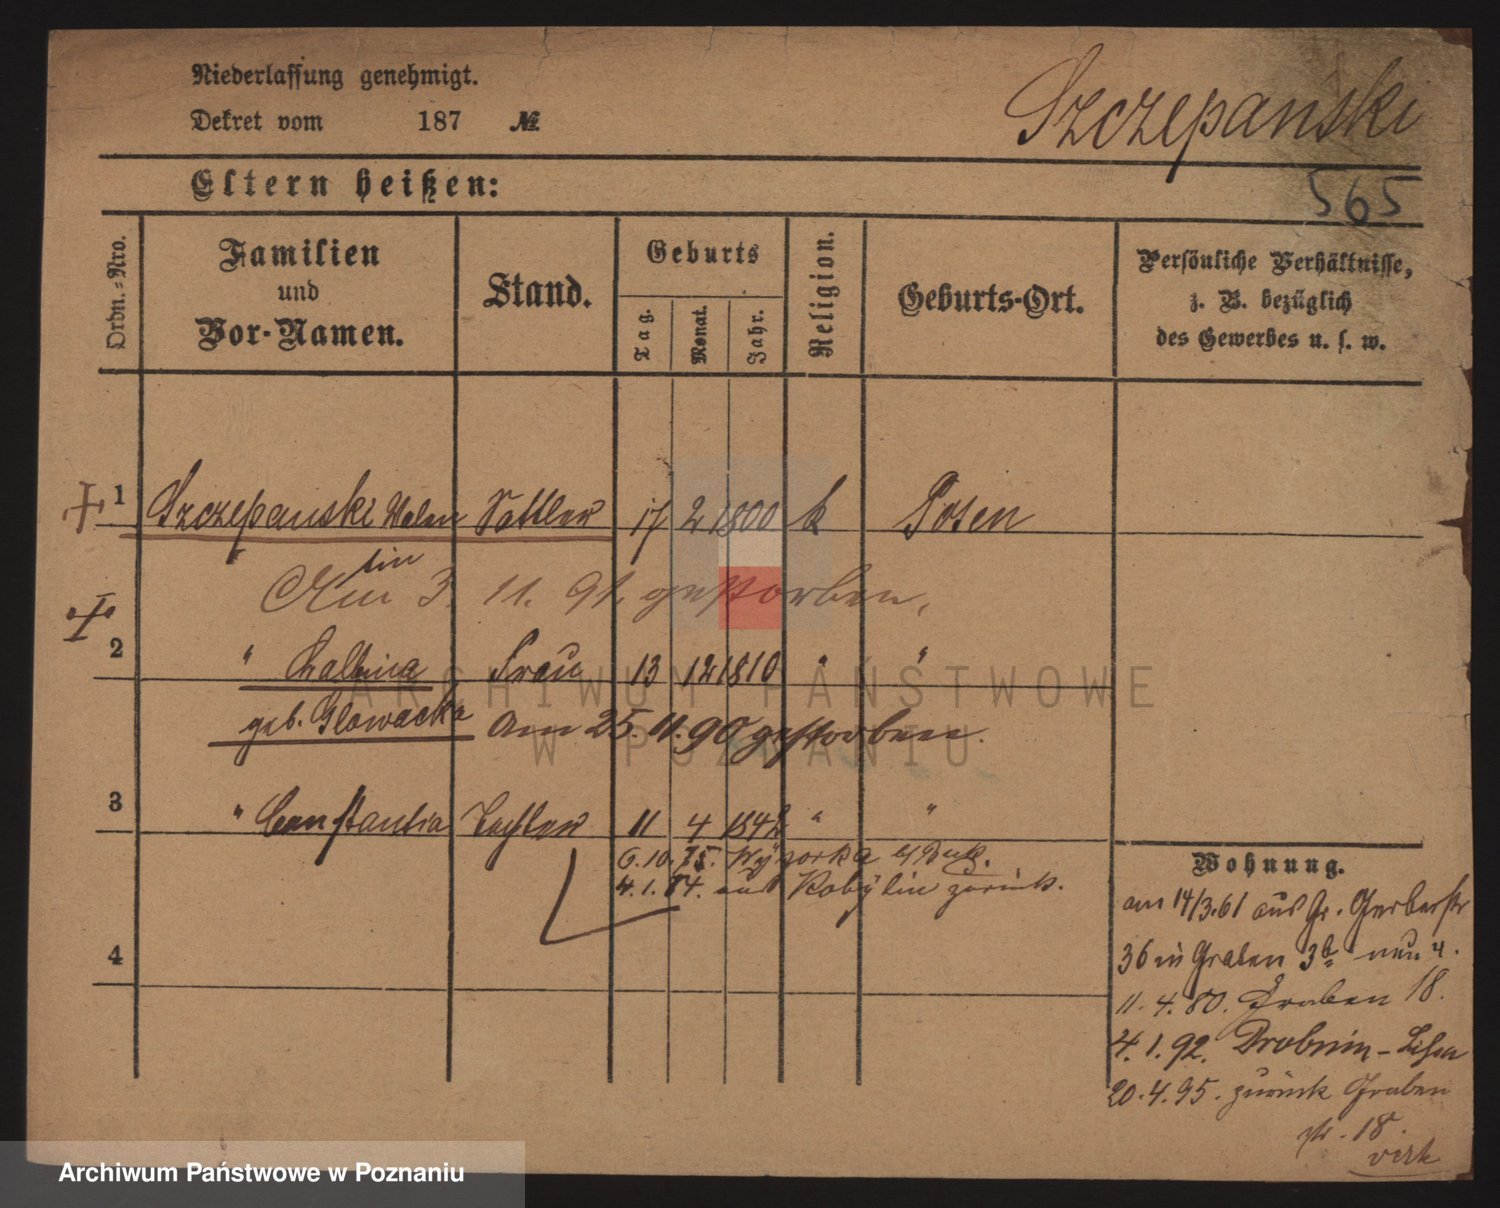 Niederlassung genehmigt.
Dekret vom 187 №
Szczepański
Eltern heißen:
565
Ordn.-Nro.
Familien
und
Vor-Namen.
Stand.
Geburts
Tag.
Monat.
Jahr.
Religion.
Geburts-Ort.
Persönliche Verhältnisse,
z. B. bezüglich
des Gewerbes u. s. w.
1 Szczepanski Valen Sattler 17 2 1800 k Posen
tin
Am 3. 11. 91. gestorben.
2 " Balbina Frau 13 12 1810 " "
geb. Glowacka Am 25. 11. 90 gestorben.
3 " Constantia Tochter 11 4 1842 " "
6. 10. 75.
4. 1. 84. aus Kobylin zurück.
4
Wohnung.
am 14/3.61 aus Gr. Gerberstr
36 in Graben 3b neu 4.
11. 4. 80. Graben 18.
4. 1. 92. - Lissa
20. 4. 95. zurück Graben
18.
ARCHIWUM PAŃSTWOWE
W POZNANIU
Archiwum Państwowe w Poznaniu